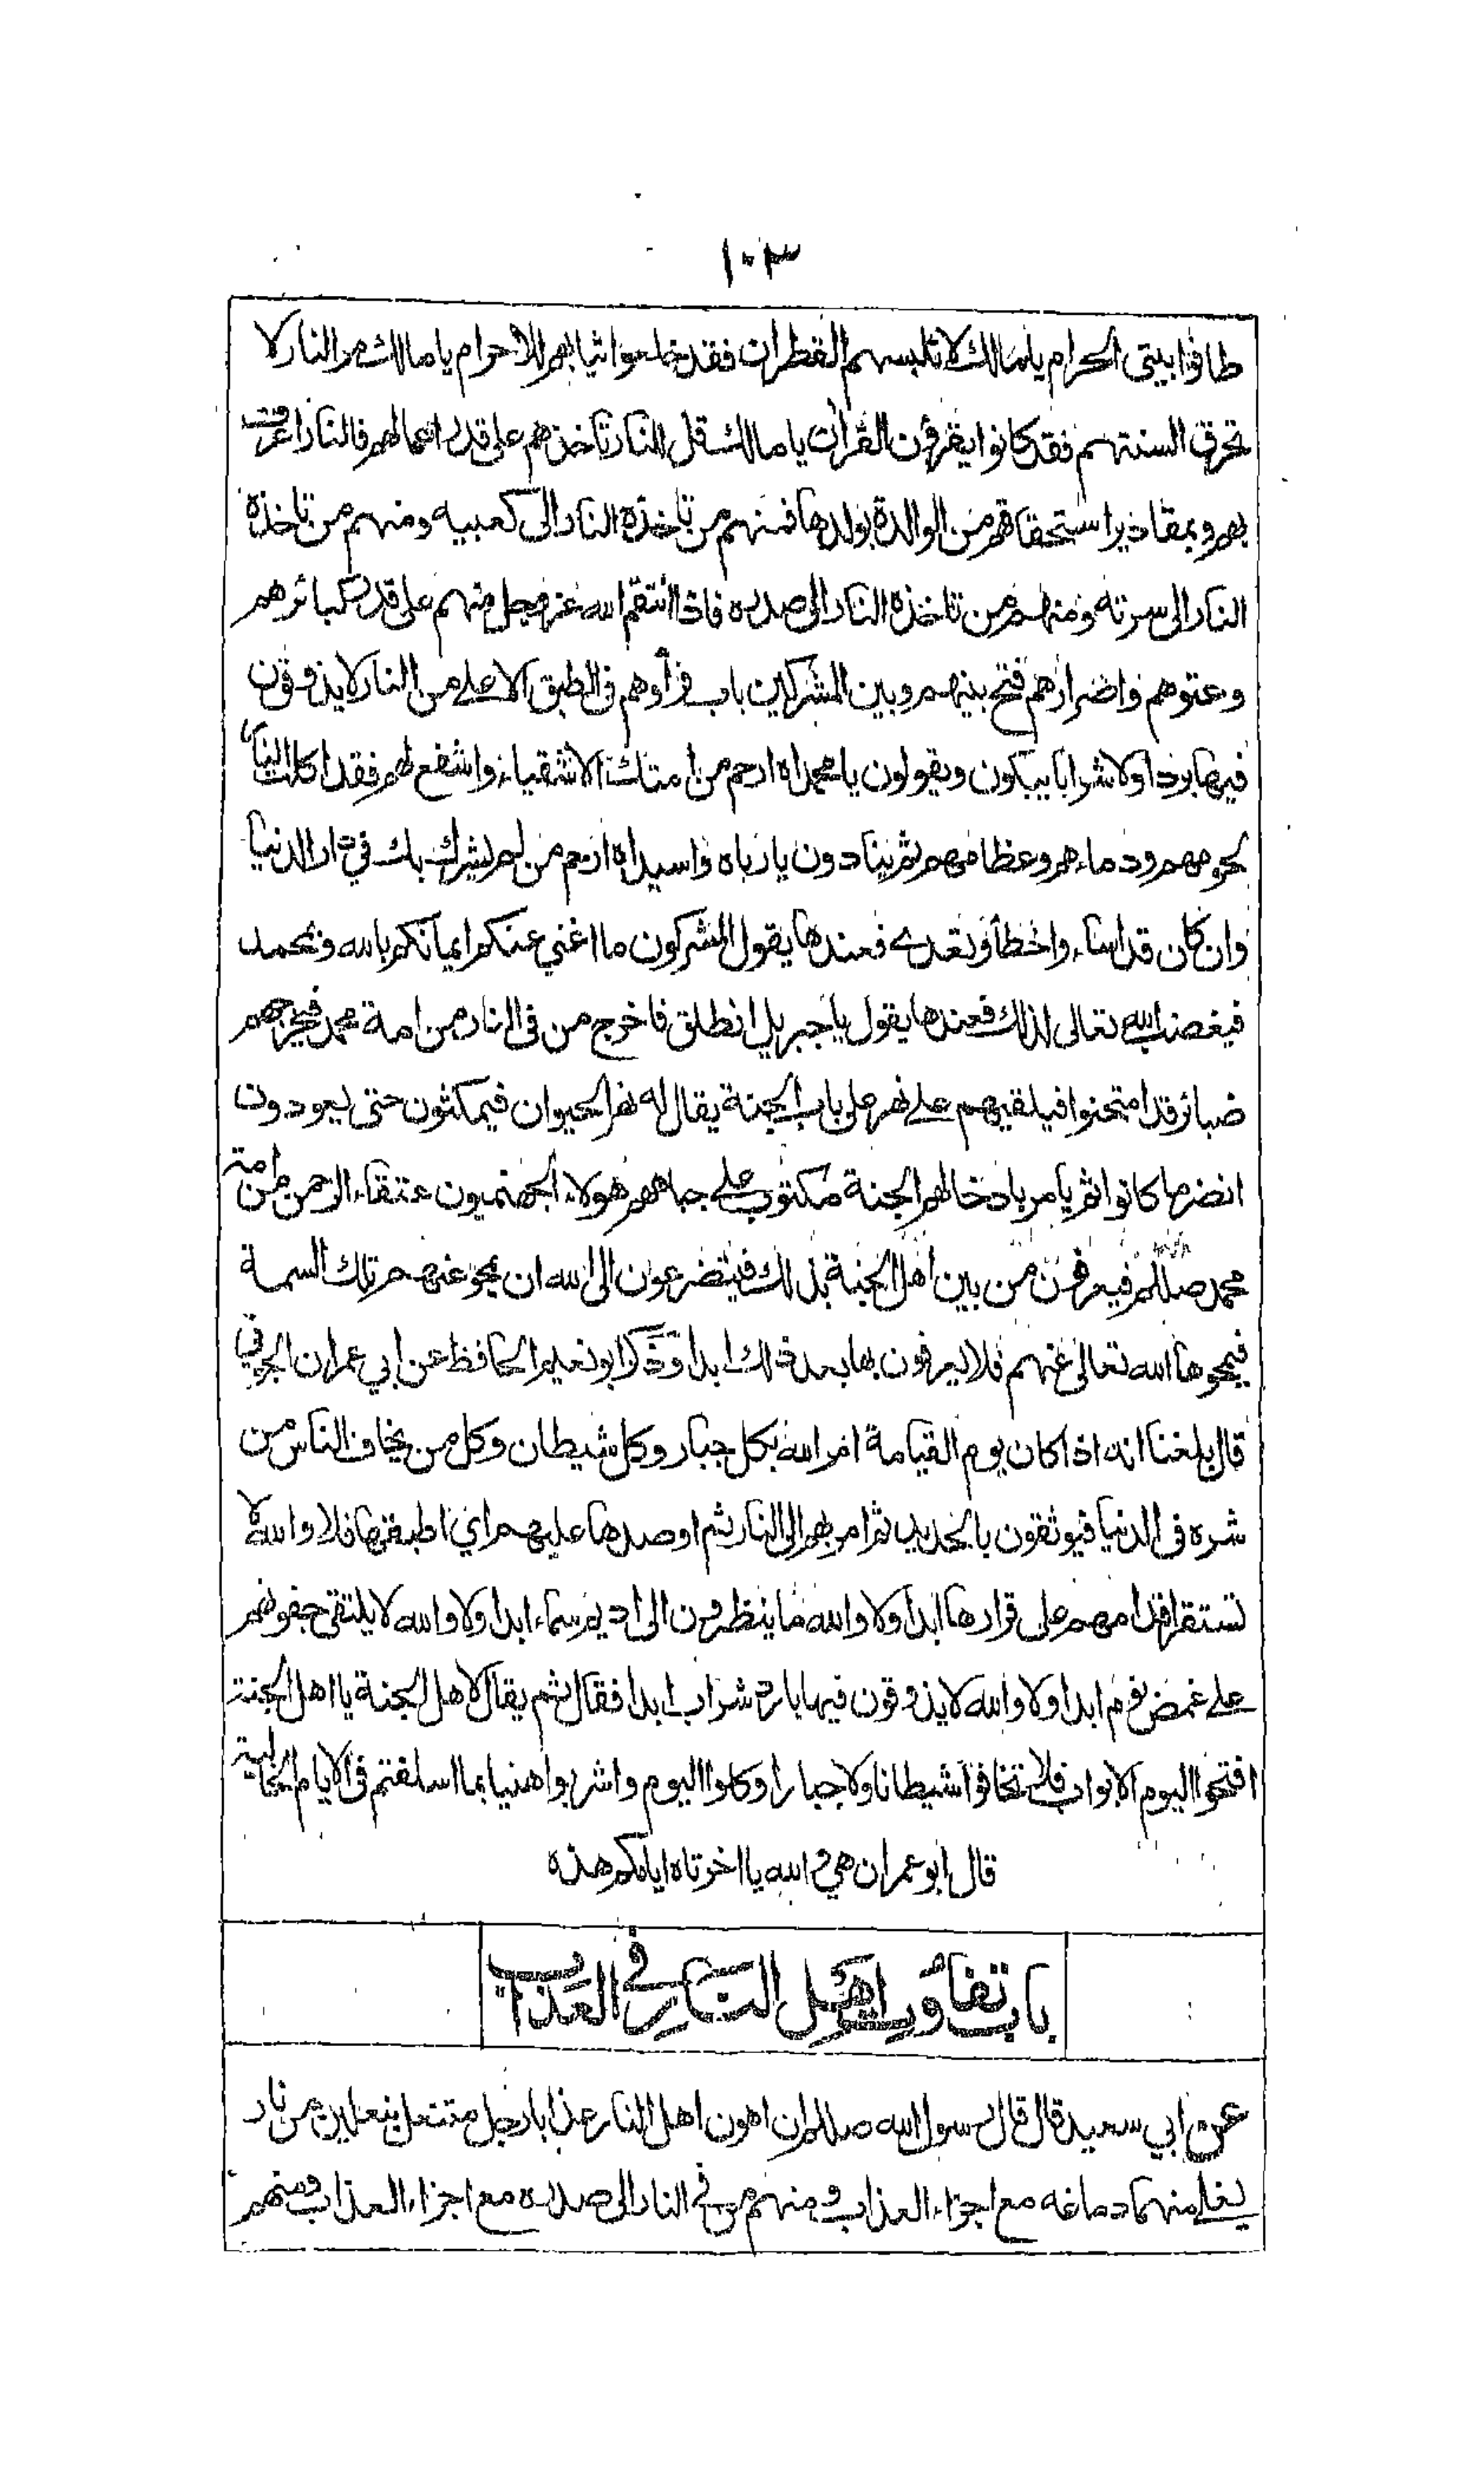 ١٠٣
طافوا ببيتي الحرام يا مالك لا تلبسهم القطران فقد خلعوا ثيابهم للاحرام يا مالك مر النار لا
تحرق السنتهم فقد كانوا يقرؤن القرآن يا مالك قل للنار تاخذهم على قدر اعمالهم فالنار اعرف
بهم وبمقادير استحقاقهم من الوالدة بولدها فمنهم من تاخذه النار الى كعبيه ومنهم من تاخذه
النار الى سرته ومنهم من تاخذه النار الى صدره فاذا انتقم الله عز وجل منهم على قدر كبائرهم
وعتوهم واضرارهم فتح بينهم وبين المشركين باب فرأوهم في الطبق الاعلى من النار لا يذوقون
فيها بردا ولا شرابا يبكون ويقولون يا محمداه ارحم من امتك الاشقياء واشفع لهم فقد اكلت النار
لحومهم ودماءهم وعظامهم ثم ينادون يا رباه واسيداه ارحم من لم يشرك بك في دار الدنيا
وان كان قد اساء واخطأ وتعدى فعندها يقول المشركون ما اغنى عنكم ايمانكم بالله وبمحمد
فيغضب الله تعالى لذلك فعندها يقول يا جبريل انطلق فاخرج من في النار من امة محمد فيخرجهم
ضبائر قد امتحنوا فيلقيهم على نهر على باب الجنة يقال له نهر الحيوان فيمكثون حتى يعودون
انضر ما كانوا ثم يامر بادخالهم الجنة مكتوب على جباههم هولاء الجهنميون عتقاء الرحمن من امة
محمد صللم فيعرفون من بين اهل الجنة بذلك فيتضرعون الى الله ان يمحو عنهم تلك السمة
فيمحوها الله تعالى عنهم فلا يعرفون بها بعد ذلك ابدا وذكر ابو نعيم الحافظ عن ابي عمران الجوني
قال بلغنا انه اذا كان يوم القيامة امر الله بكل جبار وكل شيطان وكل من يخاف الناس من
شره في الدنيا فيوثقون بالحديد ثم امر بهم الى النار ثم اوصدها عليهم اي اطبقها فلا والله لا
تستقر اقدامهم على قرارها ابدا ولا والله ما ينظرون الى اديم سماء ابدا ولا والله لا يلتقي جفونهم
على غمض نوم ابدا ولا والله لا يذوقون فيها بارد شراب ابدا فقال ثم يقال لاهل الجنة يا اهل الجنة
افتحوا اليوم الابواب فلا تخافوا شيطانا ولا جبارا وكلوا اليوم واشربوا هنيا بما اسلفتم في الايام الخالية
قال ابو عمران هي والله يا اخوتاه ايامكم هذه
باب تفاوت اهل النار في العذاب
عن ابي سعيد قال قال رسول الله صللم ان اهون اهل النار عذابا رجل متنعل بنعلين من نار
يغلي منهما دماغه مع اجزاء العذاب ومنهم من في النار الى صدره مع اجزاء العذاب ومنهم